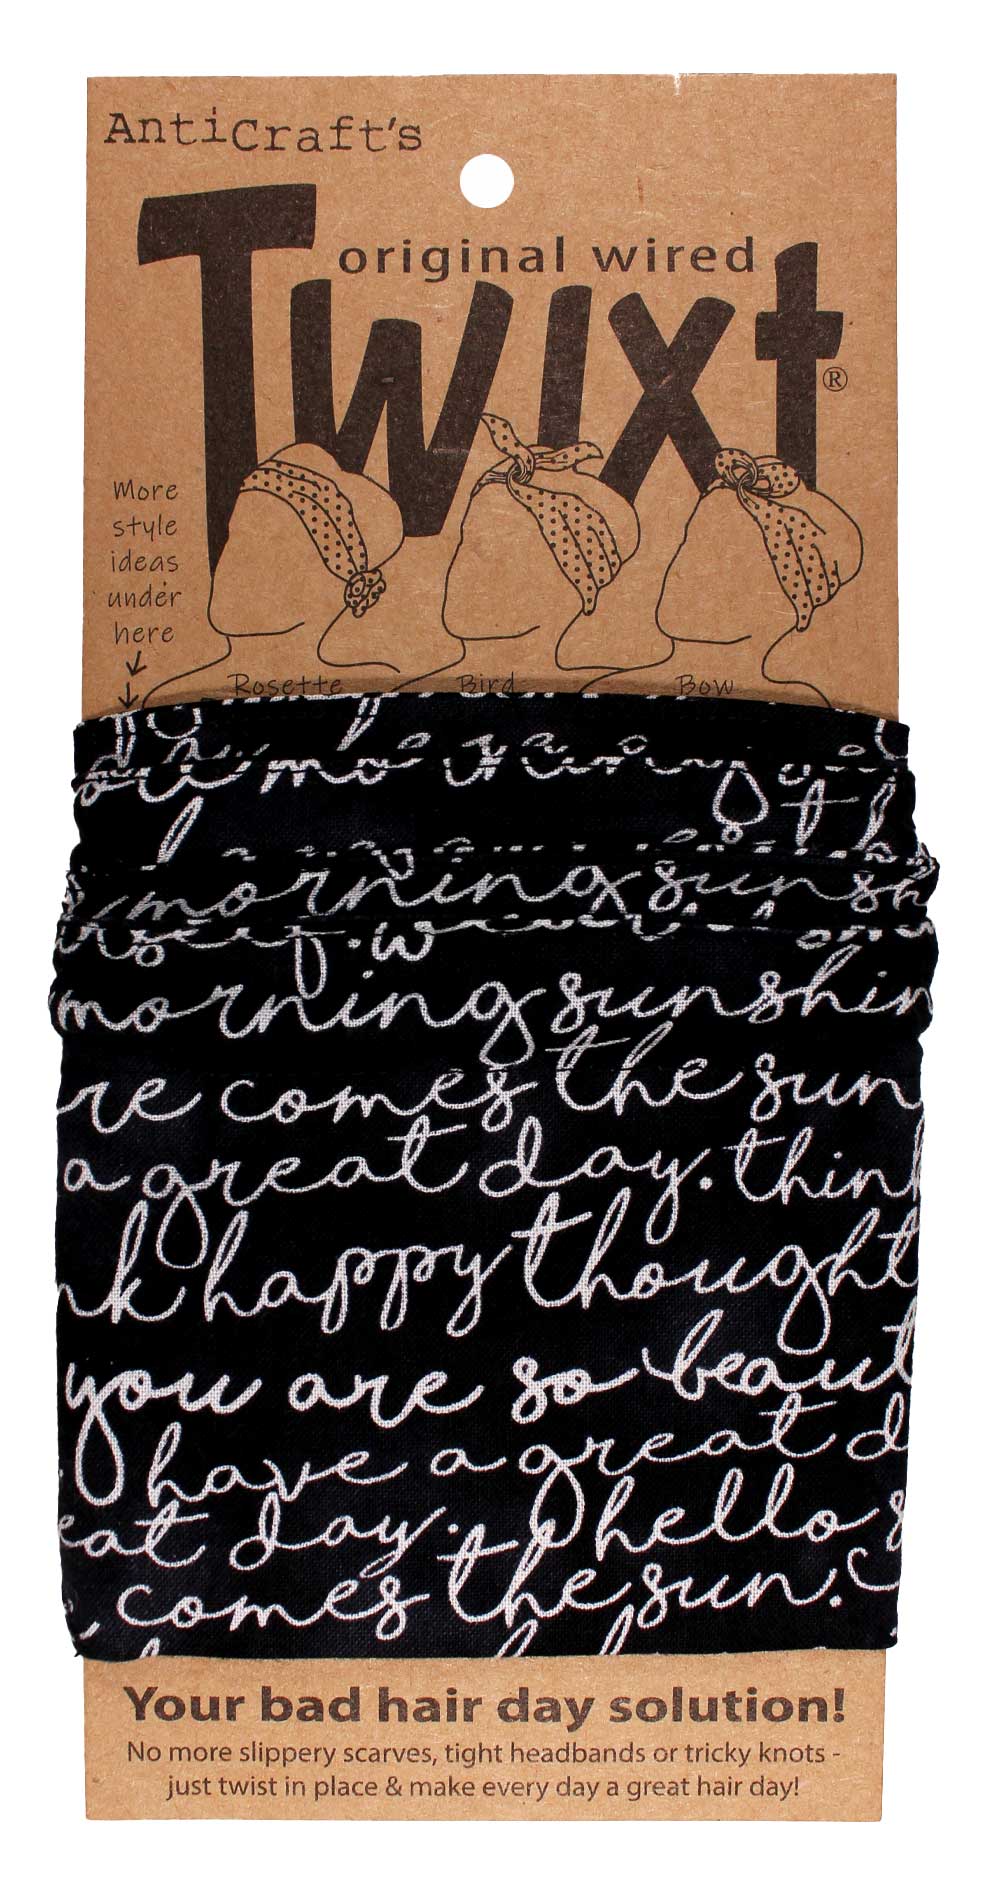 AntiCraft's
original wired
Twixt®
More
style
ideas
under
here
Rosette Bird Bow
morning sunsh
morning sunshin
re comes the sun
a great day. think
nk happy thought
you are so beaut
have a great d
eat day. hello s
comes the sun.
Your bad hair day solution!
No more slippery scarves, tight headbands or tricky knots -
just twist in place & make every day a great hair day!